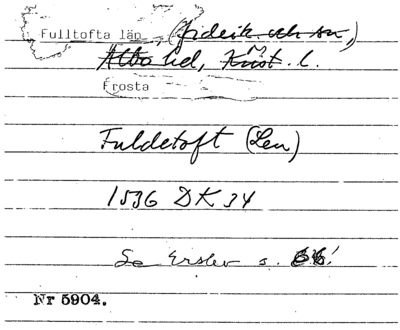 Fulltofta län, (
Albo hd, Krist. l.
Frosta
Fuldetoft (Len)
1536 DK 34
Se Erslev s.
Nr 5904.